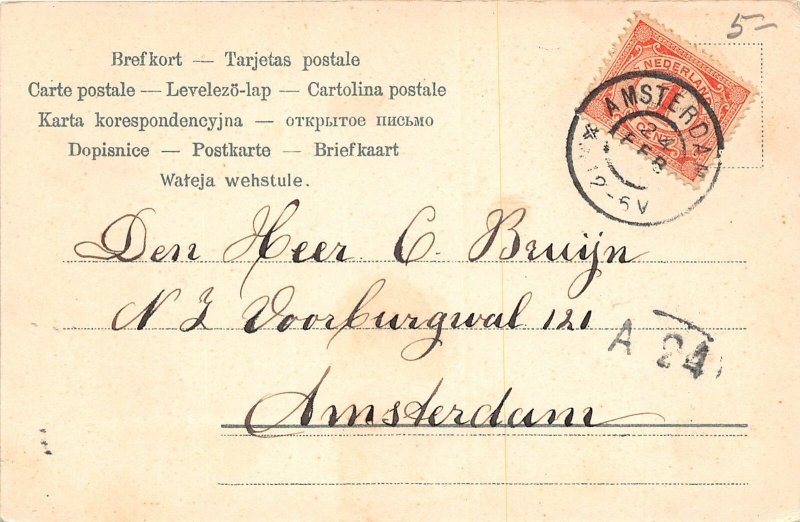 5-
Brefkort — Tarjetas postale
Carte postale — Levelezö-lap — Cartolina postale
Karta korespondencyjna — открытое письмо
Dopisnice — Postkarte — Briefkaart
Wałeja wehstule.
NEDERLAND
AMSTERDAM
24
FEB
12-6V
Den Heer C. Bruijn
N Z Voorburgwal 121
A 24
Amsterdam